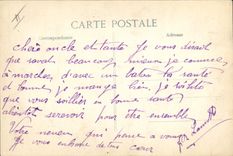 CARTE POSTALE
Correspondance Adresse
cher oncle et tante je vous dirait
que savoit beaucoup mieux je commence
à marcher, d'avec un baton la santé
et bonne je mange bien je souhaite
que vous soillier en bonne santé
bientot serevoir pour être ensemble
Votre neveu qui pense a vous
je vous embrasse de tout cœur